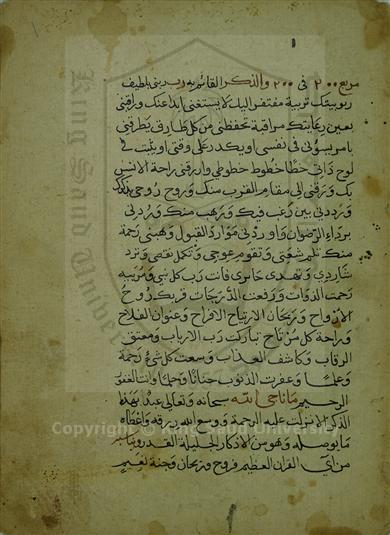 مربع ٢٠٠ في ٢٠٠ والذكر القائم به رب ربني بلطيف
ربوبيتك تربية مفتقر اليك لا يستغني ابدا عنك وراقبني
بعين رعايتك مراقبة تحفظني من كل طارق يطرقني
بامر يسؤني في نفسي او يكدر علي وقتي او يثبت في
لوح ذاتي خطا خطوط حظوظي وارزقني راحة الانس
بك ورقني الى مقام القرب منك وروح روحي بذكرك
ورددني بين رغب فيك ورهب منك وردني
برداء الرضوان واوردني موارد القبول وهبني رحمة
منك تلم شعثي وتقوم عوجي وتكمل نقصي وترد
شاردي وتهدي حائري فانت رب كل شي ومربيه
رحمت الذوات ورفعت الدرجات قربك روح
الارواح وريحان الارتياح الافراح وعنوان الفلاح
وراحة كل مرتاح تباركت رب الارباب ومعتق
الرقاب وكاشف العذاب وسعت كل شي رحمة
وعلما وغفرت الذنوب حنانا وحلما وانت الغفور
الرحيم ما ناجى الله سبحانه وتعالى عبد بهذا
الذكر الا نزلت عليه الرحمة ووسع الله رزقه واعطاه
ما يوصله وهو من الاذكار الجليلة القدر
من آي القران العظيم فروح وريحان وجنة نعيم
Copyright © King Saud University
King Saud University
١